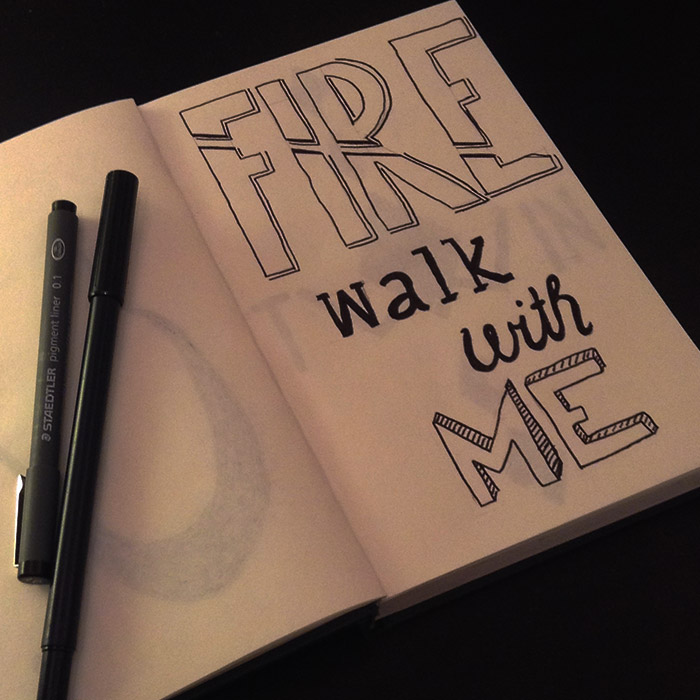 FIRE
walk
with
ME
STAEDTLER pigment liner 0.1